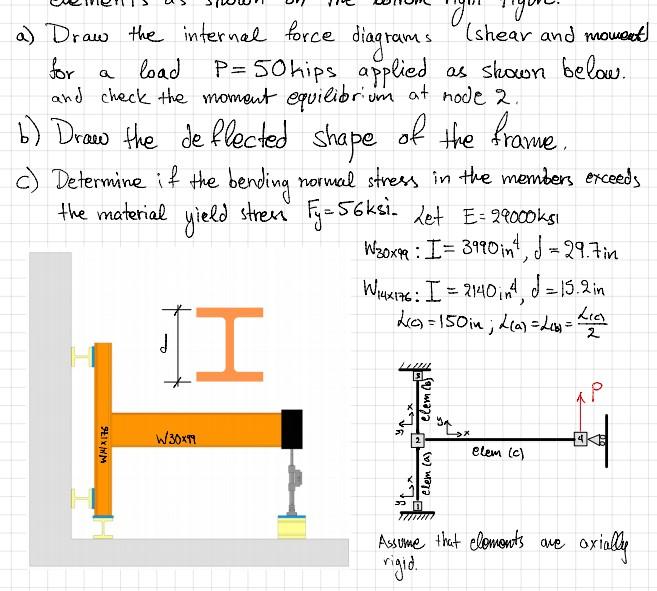 a) Draw the internal force diagrams (shear and moment)
for a load P = 50 kips applied as shown below.
and check the moment equilibrium at node 2.
b) Draw the deflected shape of the frame.
c) Determine if the bending normal stress in the members exceeds
the material yield stress Fy = 56 ksi. Let E = 29000 ksi
W30x99 : I = 3990 in⁴, d = 29.7 in
W14x176 : I = 2140 in⁴, d = 15.2 in
L(c) = 150 in ; L(a) = L(b) = L(c)/2
d
W14x176
W30x99
3
elem (b)
P
y x
y x
2
4
elem (c)
elem (a)
y x
1
Assume that elements are axially
rigid.